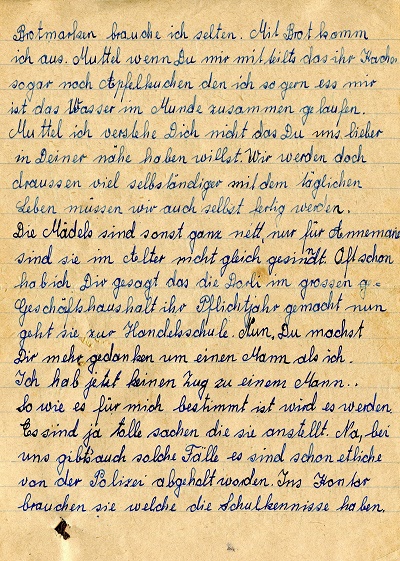 Brotmarken brauche ich selten. Mit Brot komm
ich aus. Muttel wenn Du mir mitteilts das ihr Kuchen
sogar noch Apfelkuchen den ich so gern ess mir
ist das Wasser im Munde zusammen gelaufen.
Muttel ich verstehe Dich nicht das Du uns lieber
in Deiner nähe haben willst. Wir werden doch
draussen viel selbständiger mit dem täglichen
Leben müssen wir auch selbst fertig werden.
Die Mädels sind sonst ganz nett, nur für Annemarie
sind sie im Alter nicht gleich gesinnt. Oft schon
hab ich Dir gesagt das die Dorli im grossen g=
Geschäftshaushalt ihr Pflichtjahr gemacht nun
geht sie zur Handelsschule. Nun, Du machst
Dir mehr gedanken um einen Mann als ich.
Ich hab jetzt keinen Zug zu einem Mann..
So wie es für mich bestimmt ist wird es werden.
Es sind ja tolle sachen die sie anstellt. Na, bei
uns gibts auch solche Fälle es sind schon etliche
von der Polizei abgeholt worden. Ins Kontor
brauchen sie welche die Schulkennisse haben.